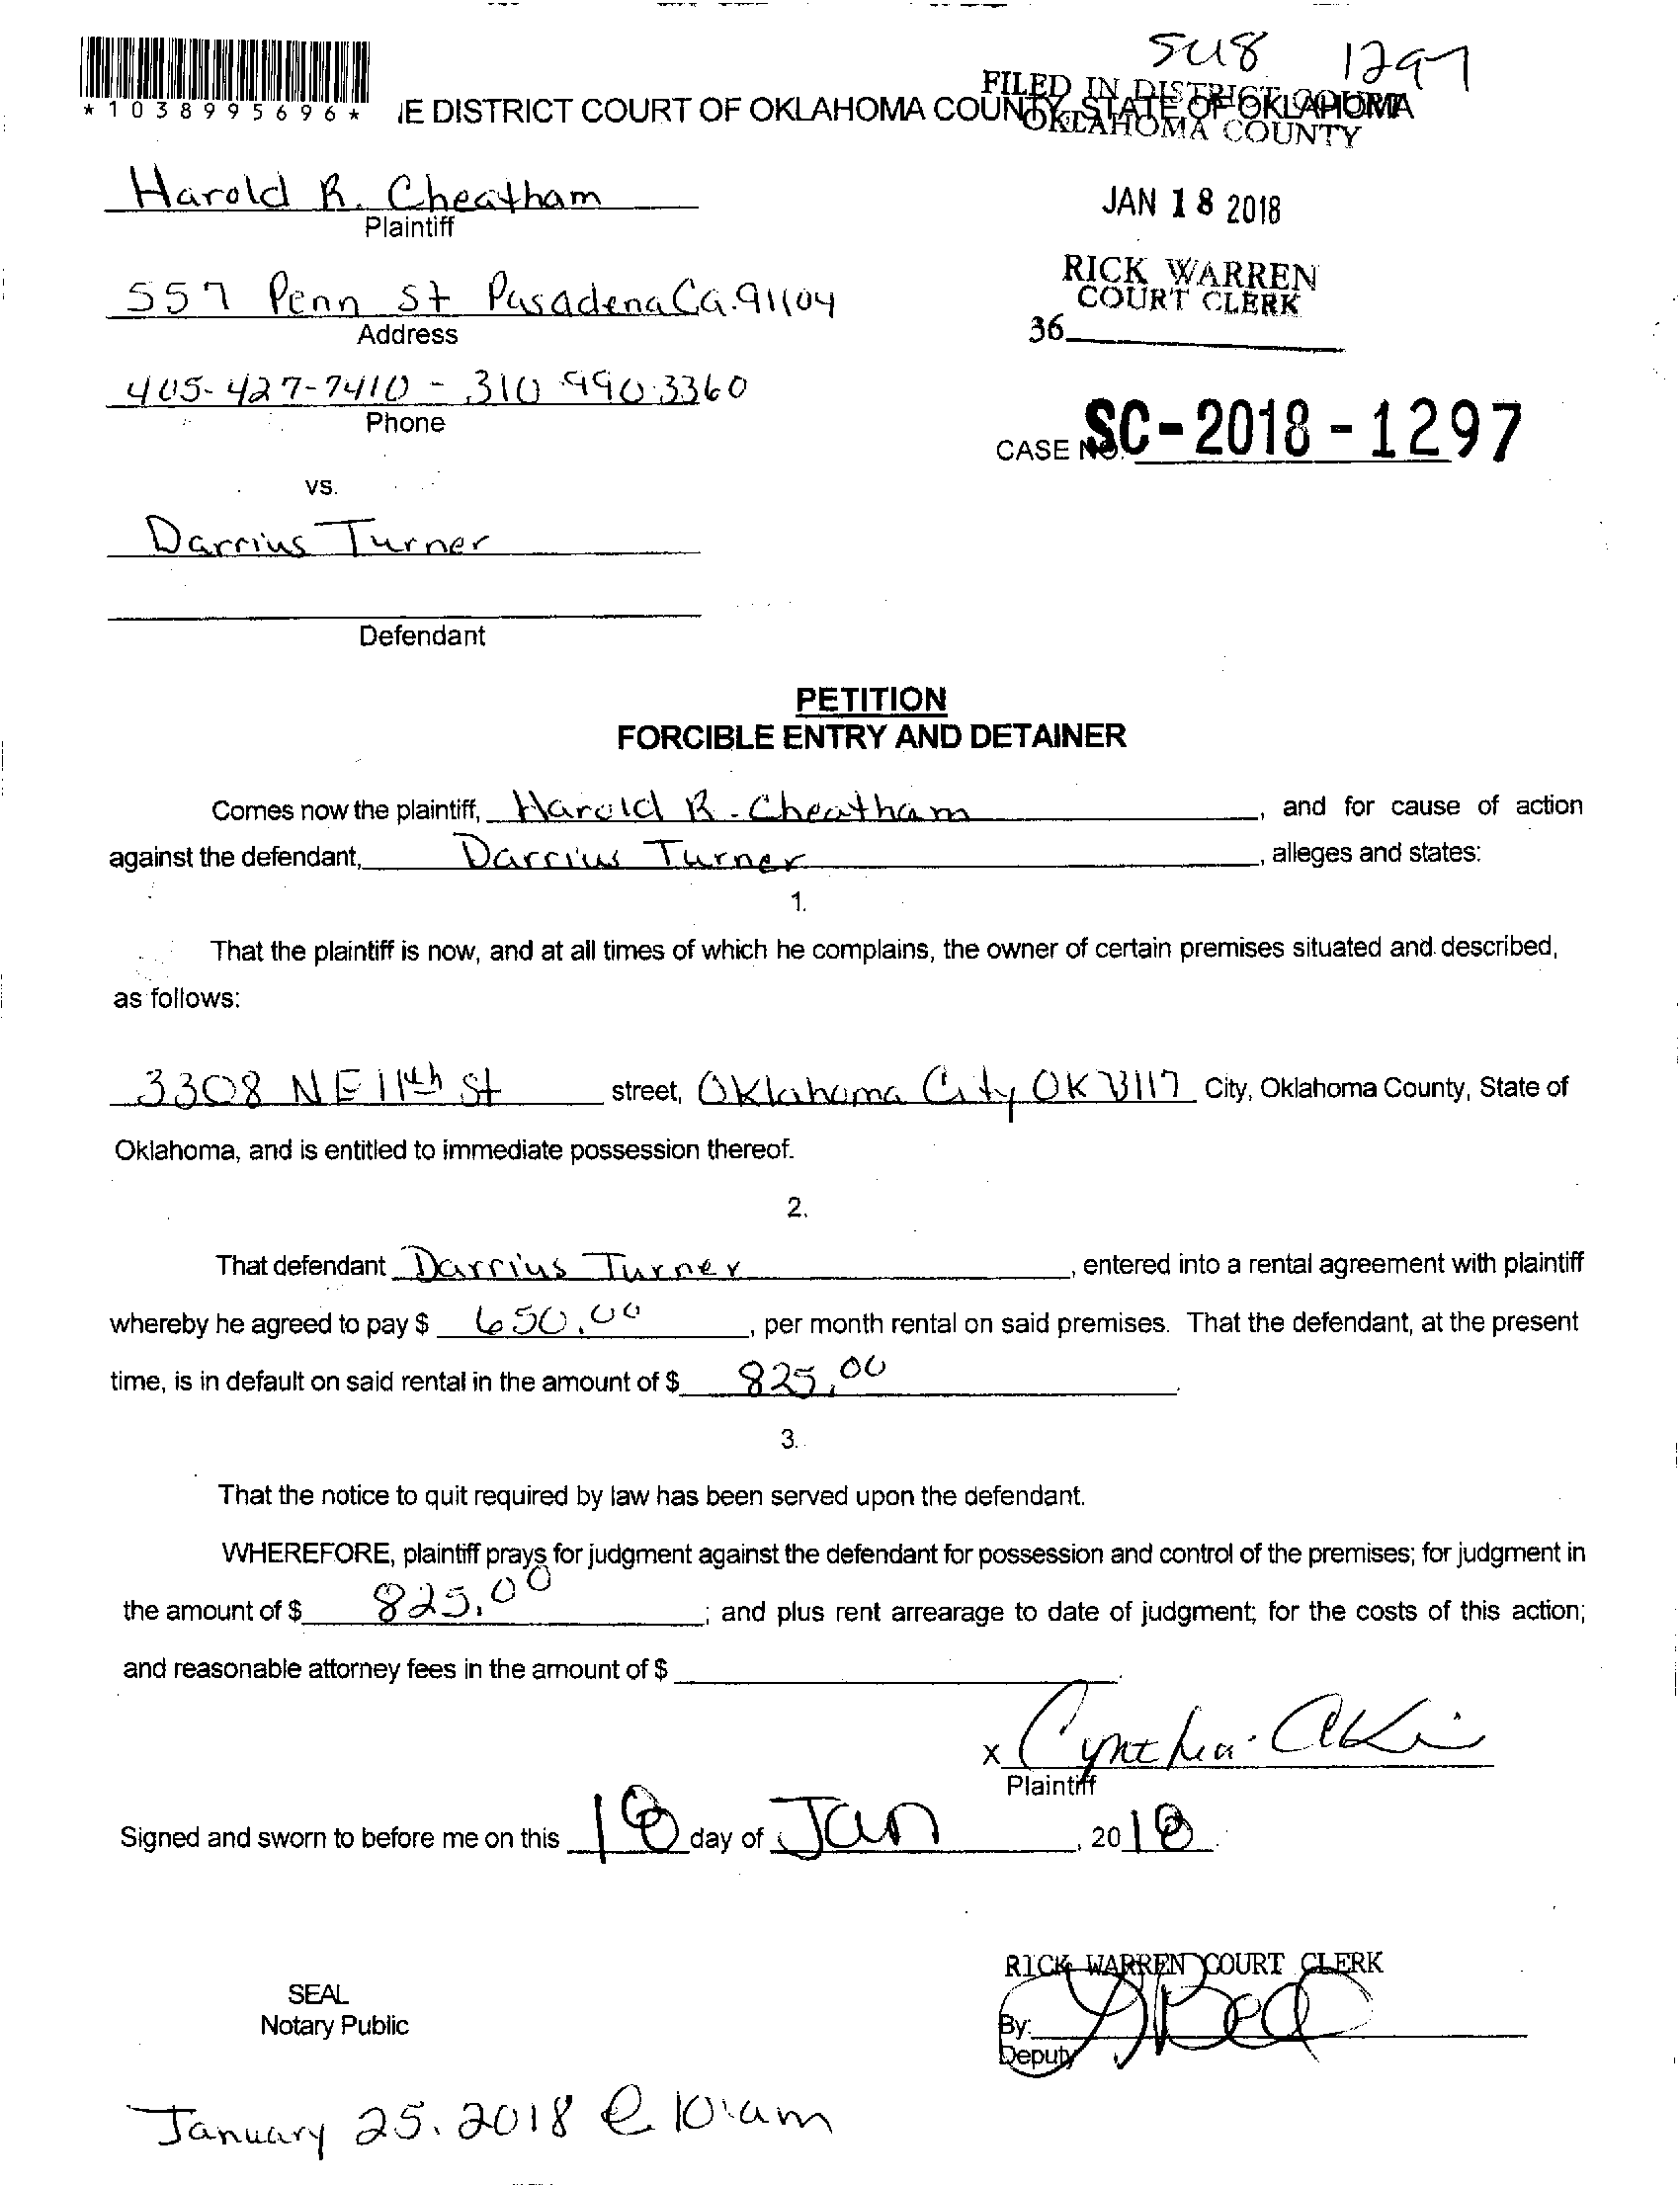 SC18 1297
*1038995696* IE DISTRICT COURT OF OKLAHOMA COUNTY, STATE OF OKLAHOMA
FILED IN DISTRICT COURT
OKLAHOMA COUNTY
Harold R. Cheatham
Plaintiff
JAN 18 2018
557 Penn St Pasadena Ca. 91104
Address
RICK WARREN
COURT CLERK
36
405-427-7410 - 310 990.3360
Phone
CASE NO. SC-2018-1297
vs.
Darrius Turner
Defendant
PETITION
FORCIBLE ENTRY AND DETAINER
Comes now the plaintiff, Harold R. Cheatham, and for cause of action
against the defendant, Darrius Turner, alleges and states:
1.
That the plaintiff is now, and at all times of which he complains, the owner of certain premises situated and described,
as follows:
3308 NE 11th St street, Oklahoma City OK 73117 City, Oklahoma County, State of
Oklahoma, and is entitled to immediate possession thereof.
2.
That defendant Darrius Turner, entered into a rental agreement with plaintiff
whereby he agreed to pay $ 650.00, per month rental on said premises. That the defendant, at the present
time, is in default on said rental in the amount of $ 825.00.
3.
That the notice to quit required by law has been served upon the defendant.
WHEREFORE, plaintiff prays for judgment against the defendant for possession and control of the premises; for judgment in
the amount of $ 825.00; and plus rent arrearage to date of judgment; for the costs of this action;
and reasonable attorney fees in the amount of $
x Cynthia
Plaintiff
Signed and sworn to before me on this 18 day of Jan, 2018.
RICK WARREN COURT CLERK
SEAL
Notary Public
By:
Deputy
January 25. 2018 @ 10:am